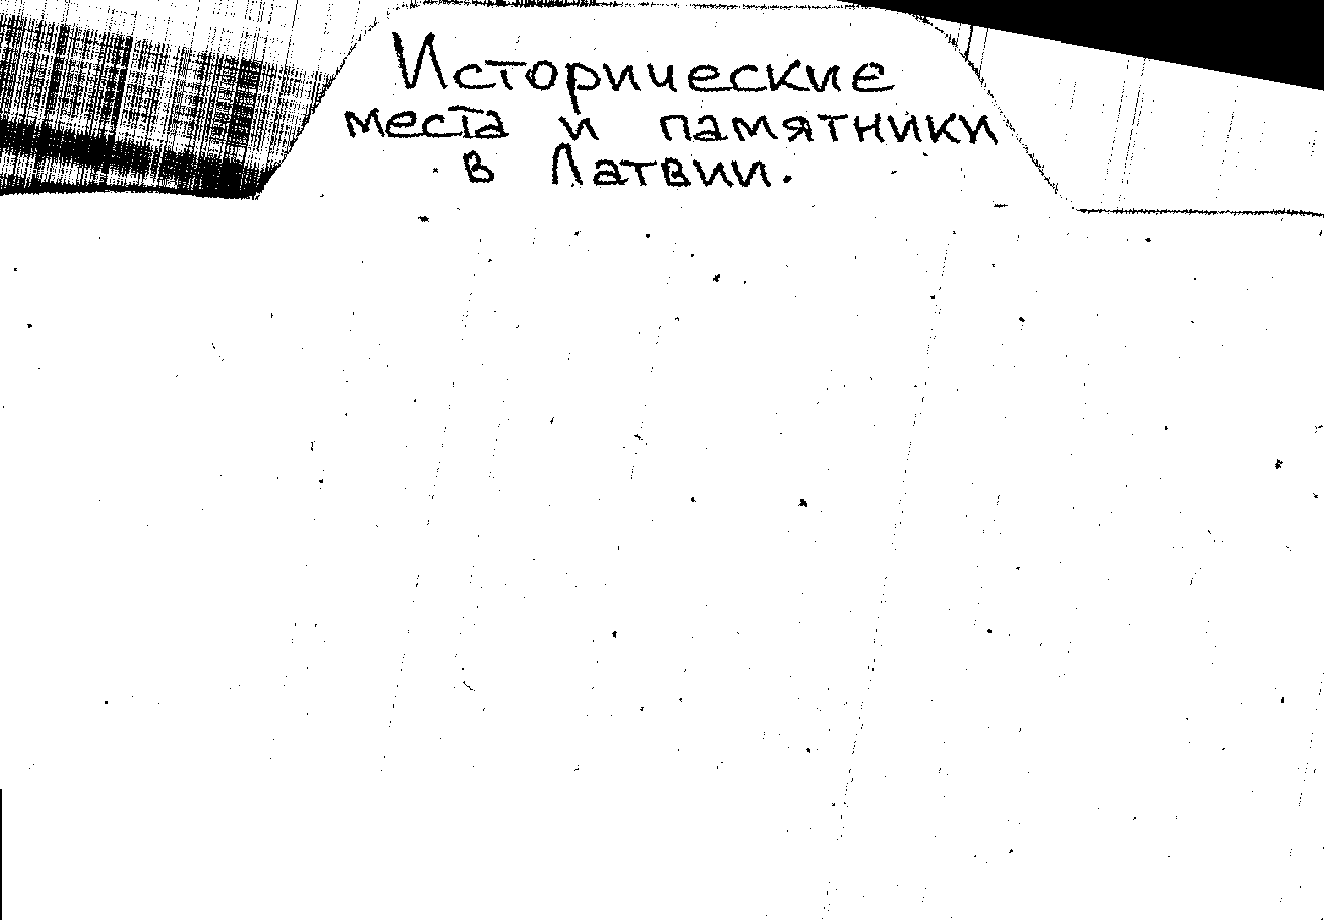 Исторические
места и памятники
в Латвии.